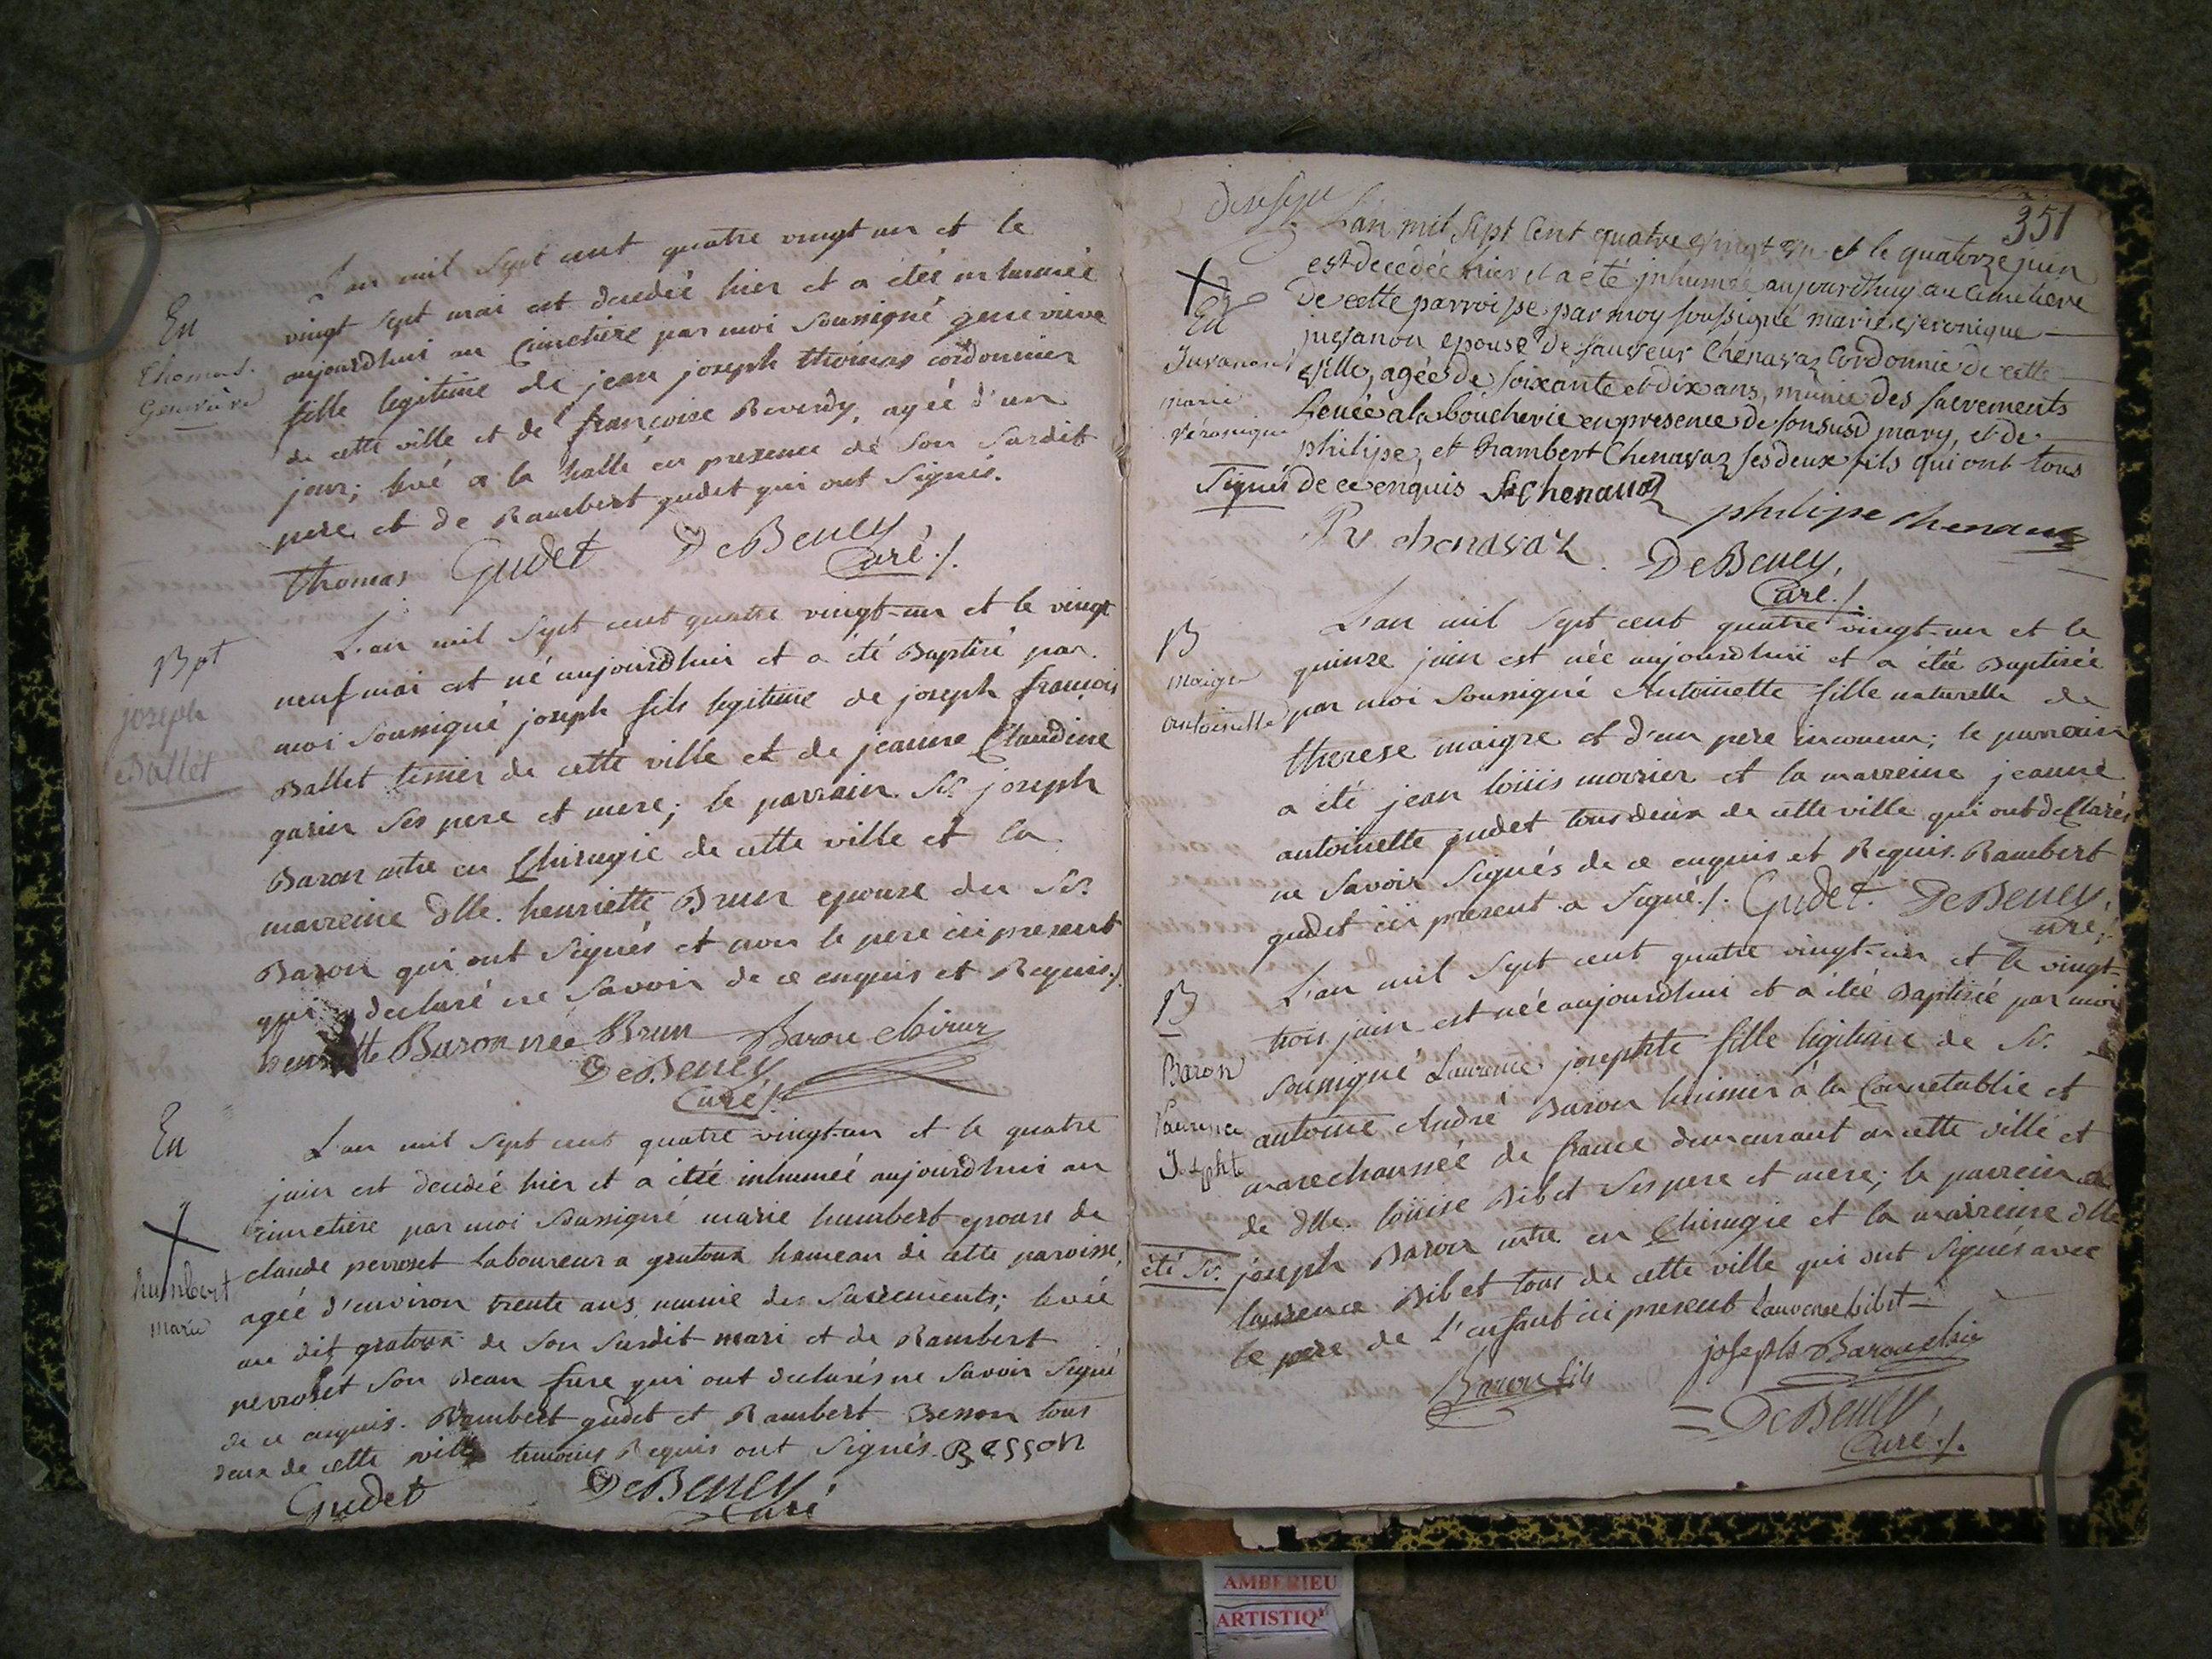 En
Thomas.
Genevieve
L'an mil Sept cent quatre vingt un et le
vingt sept mai est decedée hier et a étée inhumée
aujourdhui au Cimetiere par moi Soussigné genevieve
fille legitime de jean joseph thomas cordonnier
de cette ville et de françoise Reverdy, agée d'un
jour; levé a la halle en presence de Son Susdit
pere et de Rambert gudet qui ont Signés.
thomas Gudet De Beney
Curé /.
Bpt
joseph
Ballet
L'an mil Sept cent quatre vingt-un et le vingt
neuf mai est né aujourdhui et a été Baptisé par
moi Soussigné joseph fils legitime de joseph françois
Ballet de cette ville et de jeanne Claudine
garin Ses pere et mere; le parrain Sr. joseph
Baron mtre en Chirugie de cette ville et la
marreine dlle. henriette Brun epouse du Sr.
Baron qui ont Signés et non le pere ici present
qui a declaré ne Savoir de ce enquis et Requis /.
henriette Baron née Brun Baron chirur
De Beney
Curé /.
En
humbert
marie
L'an mil Sept cent quatre vingt-un et le quatre
juin est decedée hier et a étée inhumée aujourdhui au
cimetiere par moi Soussigné marie humbert epouse de
claude perroset Laboureur a gratoux hameau de cette paroisse,
agée d'environ trente ans munie des Sacrements; levée
au dit gratoux de Son Susdit mari et de Rambert
perroset Son Beau frere qui ont declarés ne Savoir Signé
de ce enquis. Rambert gudet et Rambert Besson tous
deux de cette ville temoins Requis ont Signés. Besson
Gudet De Beney
Curé
351
En
Juvanon
marie
Véronique
L'an mil Sept Cent quatre vingt un et le quatorze juin
est decedée hier et a été jnhumée aujourdhuy au Cimetiere
de cette parroisse par moy soussigné marie veronique
juvanon epouse de sauveur Chenavaz Cordonnie de cette
ville, agée de soixante et dix ans, munie des sacrements
Levée a la boucherie en presence de son susd mary, et de
philipe, et Rambert Chenavaz ses deux fils qui ont tous
Signés de ce enquis S Chenavaz
philipe chenavaz
Rt chenavaz De Beney,
Curé /.
B
maigre
antoinette
L'an mil Sept cent quatre vingt-un et le
quinze juin est née aujourdhui et a étée Baptisée
par moi Soussigné Antoinette fille naturelle de
therese maigre et d'un pere inconnu; le parrain
a été jean loüis morier et la marreine jeanne
antoinette gudet tous deux de cette ville qui ont declarés
ne Savoir Signés de ce enquis et Requis. Rambert
gudet ici present a Signé /. Gudet. De Beney,
Curé /.
B
Baron
Laurence
Josephte
L'an mil Sept cent quatre vingt-un et le vingt-
trois juin est née aujourdhui et a étée Baptisée par moi
Soussigné Laurence josephte fille legitime de Sr.
antoine André Baron huissier à la Connetablie et
marechaussée de france demeurant en cette ville et
de dlle. loüise Bibet Ses pere et mere; le parrein a
été Sr. joseph Baron mtre en Chirugie et la marreine dlle
laurence Bibet tous de cette ville qui ont Signés avec
le pere de L'enfant ici present Laurence bibet
Baron fils joseph Baron chir
De Beney,
Curé /.
AMBERIEU
ARTISTIQ